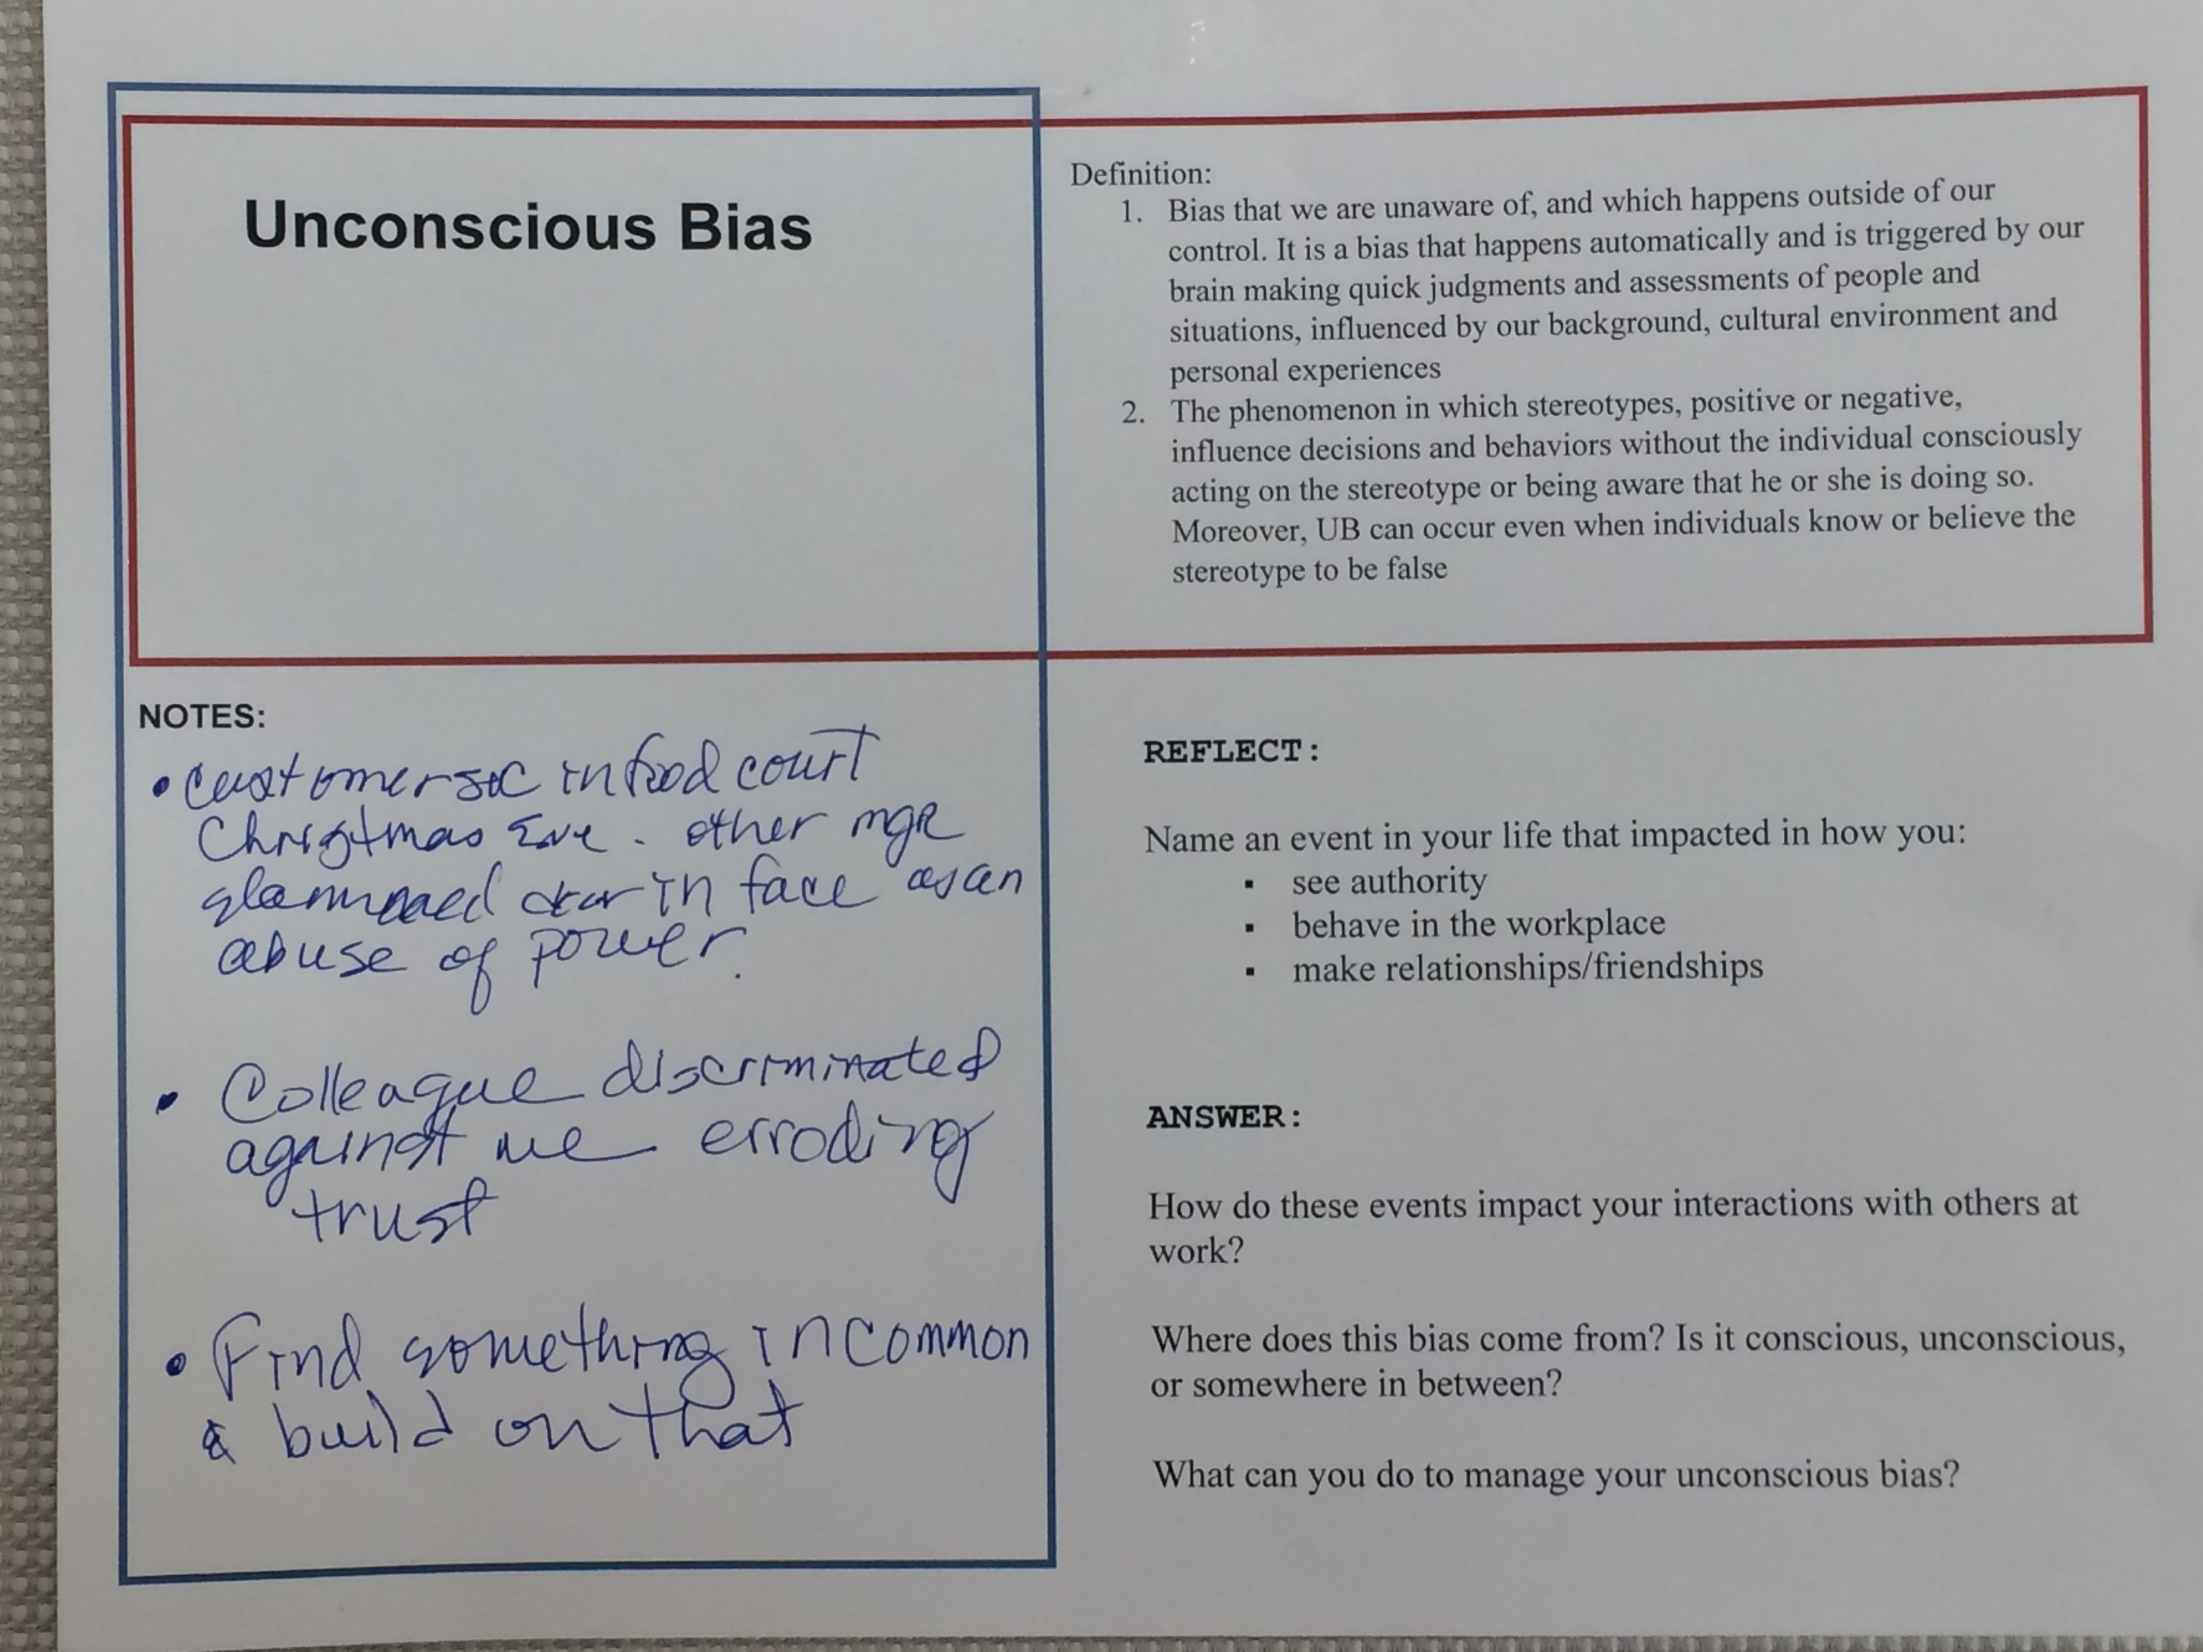 Unconscious Bias
Definition:
1. Bias that we are unaware of, and which happens outside of our
control. It is a bias that happens automatically and is triggered by our
brain making quick judgments and assessments of people and
situations, influenced by our background, cultural environment and
personal experiences
2. The phenomenon in which stereotypes, positive or negative,
influence decisions and behaviors without the individual consciously
acting on the stereotype or being aware that he or she is doing so.
Moreover, UB can occur even when individuals know or believe the
stereotype to be false
NOTES:
• in food court
Christmas Eve. other mgR
in face as an
abuse of power.
• Colleague discriminated
against me erroding
trust
• Find something in common
& build on that
REFLECT:
Name an event in your life that impacted in how you:
▪ see authority
▪ behave in the workplace
▪ make relationships/friendships
ANSWER:
How do these events impact your interactions with others at
work?
Where does this bias come from? Is it conscious, unconscious,
or somewhere in between?
What can you do to manage your unconscious bias?